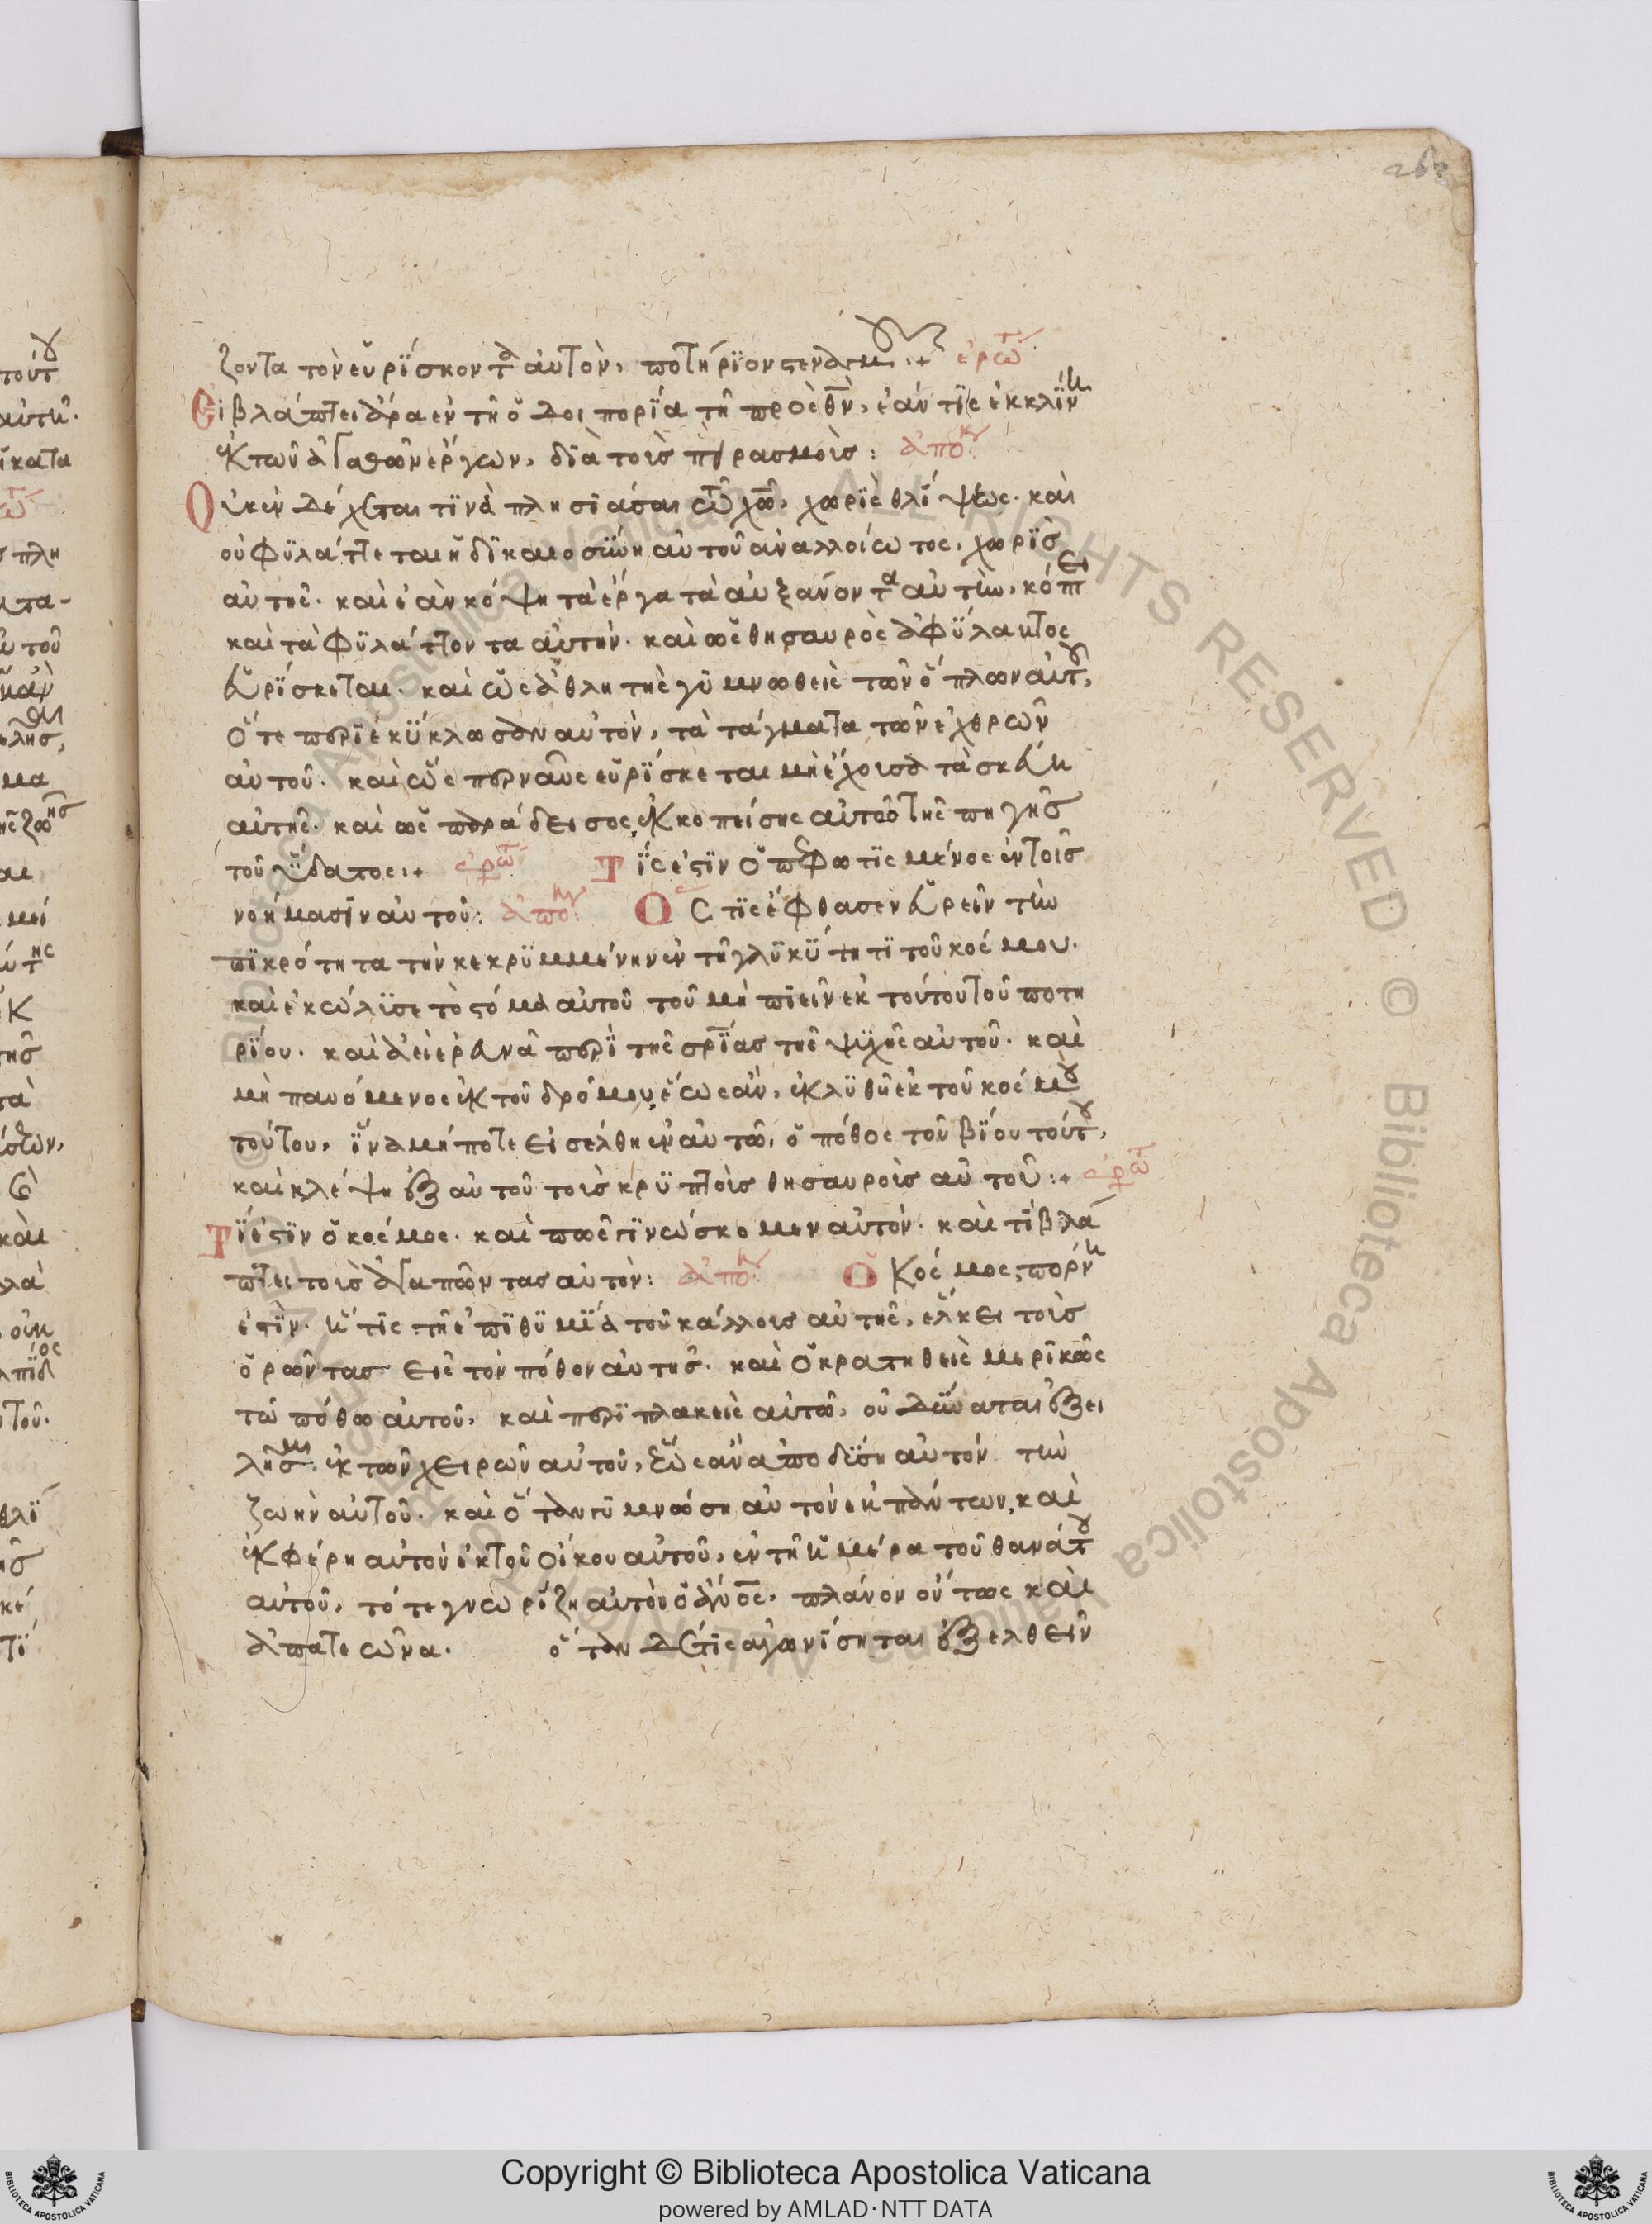 262
ζοντα τὸν εὑρίσκοντα αὐτὸν, ποτήριον στεναγμ :+ ἐρώτ
Εἰ βλάπτει ἄρα ἐν τῆ ὁδοιπορία τῆ πρὸς θν, ἐάν τις ἐκκλίν
ἐκ τῶν ἀγαθῶν ἔργων, διὰ τοὺς πειρασμοὺς : ἀπόκ
Οὐκ ἐνδέχεται τινὰ πλησιάσαι τῶ χῶ, χωρὶς θλίψεως. καὶ
οὐ φυλάττεται ἡ δικαιοσύνη αὐτοῦ ἀναλλοίωτος, χωρὶς
αὐτῆς. καὶ ἐὰν κόψη τὰ ἔργα τὰ αὐξάνοντα αὐτὴν, κόπτει
καὶ τὰ φυλάττοντα αὐτήν. καὶ ὡς θησαυρὸς ἀφύλακτος
εὑρίσκεται. καὶ ὡς ἀθλητὴς γυμνωθεὶς τῶν ὅπλων αὐτοῦ,
ὅτε περιεκύκλωσαν αὐτὸν, τὰ τάγματα τῶν ἐχθρῶν
αὐτοῦ. καὶ ὡς ναῦς εὑρίσκεται μὴ ἔχουσα τὰ σκεύη
αὐτῆς. καὶ ὡς παράδεισος ἐκκοπείσης αὐτοῦ τῆς πηγῆς
τοῦ ὕδατος :+ ἐρώτ Τίς ἐστιν ὁ πεφωτισμένος ἐν τοῖς
νοήμασιν αὐτοῦ : ἀπόκ Ὅστις ἔφθασεν εὑρεῖν τὴν
πικρότητα τὴν κεκρυμμένην ἐν τῆ γλυκύτητι τοῦ κόσμου.
καὶ ἐκώλυσε τὸ στόμα αὐτοῦ τοῦ μὴ πιεῖν ἐκ τούτου τοῦ ποτη
ρίου. καὶ ἀεὶ ἐρευνᾶ περὶ τῆς σρίας τῆς ψυχῆς αὐτοῦ. καὶ
μὴ παυόμενος ἐκ τοῦ δρόμου, ἕως ἂν ἐκλυθῆ ἐκ τοῦ κόσμου
τούτου, ἵνα μήποτε εἰσέλθη ἐν αὐτῶ, ὁ πόθος τοῦ βίου τούτου,
καὶ κλέψη ἐξ αὐτοῦ τοὺς κρυπτοὺς θησαυροὺς αὐτοῦ :+ ἐρώτ
Τί ἐστιν ὁ κόσμος. καὶ πῶς γινώσκομεν αὐτόν. καὶ τί βλά
πτει τοὺς ἀγαπῶντας αὐτόν : ἀπόκ Ὁ κόσμος, πόρνη
ἐστὶν. ἥτις τῆ ἐπιθυμία τοῦ κάλλους αὐτῆς, ἕλκει τοὺς
ὁρῶντας εἰς τὸν πόθον αὐτῆς. καὶ ὁ κρατηθεὶς μερικῶς
τῶ πόθω αὐτοῦ, καὶ περιπλακεὶς αὐτῶ, οὐ δύναται ἐξει
λῆσαι ἐκ τῶν χειρῶν αὐτοῦ, ἕως ἂν ἀποδύση αὐτόν τὴν
ζωὴν αὐτοῦ. καὶ ὅταν γυμνώση αὐτὸν ἐκ πάντων, καὶ
ἐκφέρη αὐτὸν ἐκ τοῦ οἴκου αὐτοῦ, ἐν τῆ ἡμέρα τοῦ θανάτου
αὐτοῦ, τότε γνωρίζη αὐτὸν ὁ ἀνος, πλάνον ὄντως καὶ
ἀπατεῶνα. ὅταν δέ τις ἀγωνίσηται ἐξελθεῖν
Copyright © Biblioteca Apostolica Vaticana
powered by AMLAD·NTT DATA